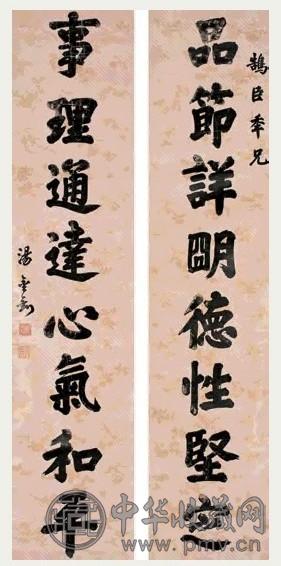 鵠臣秊兄
品節詳明德性堅定
事理通達心氣和平
湯金釗
中华收藏网
www.pmv.cn